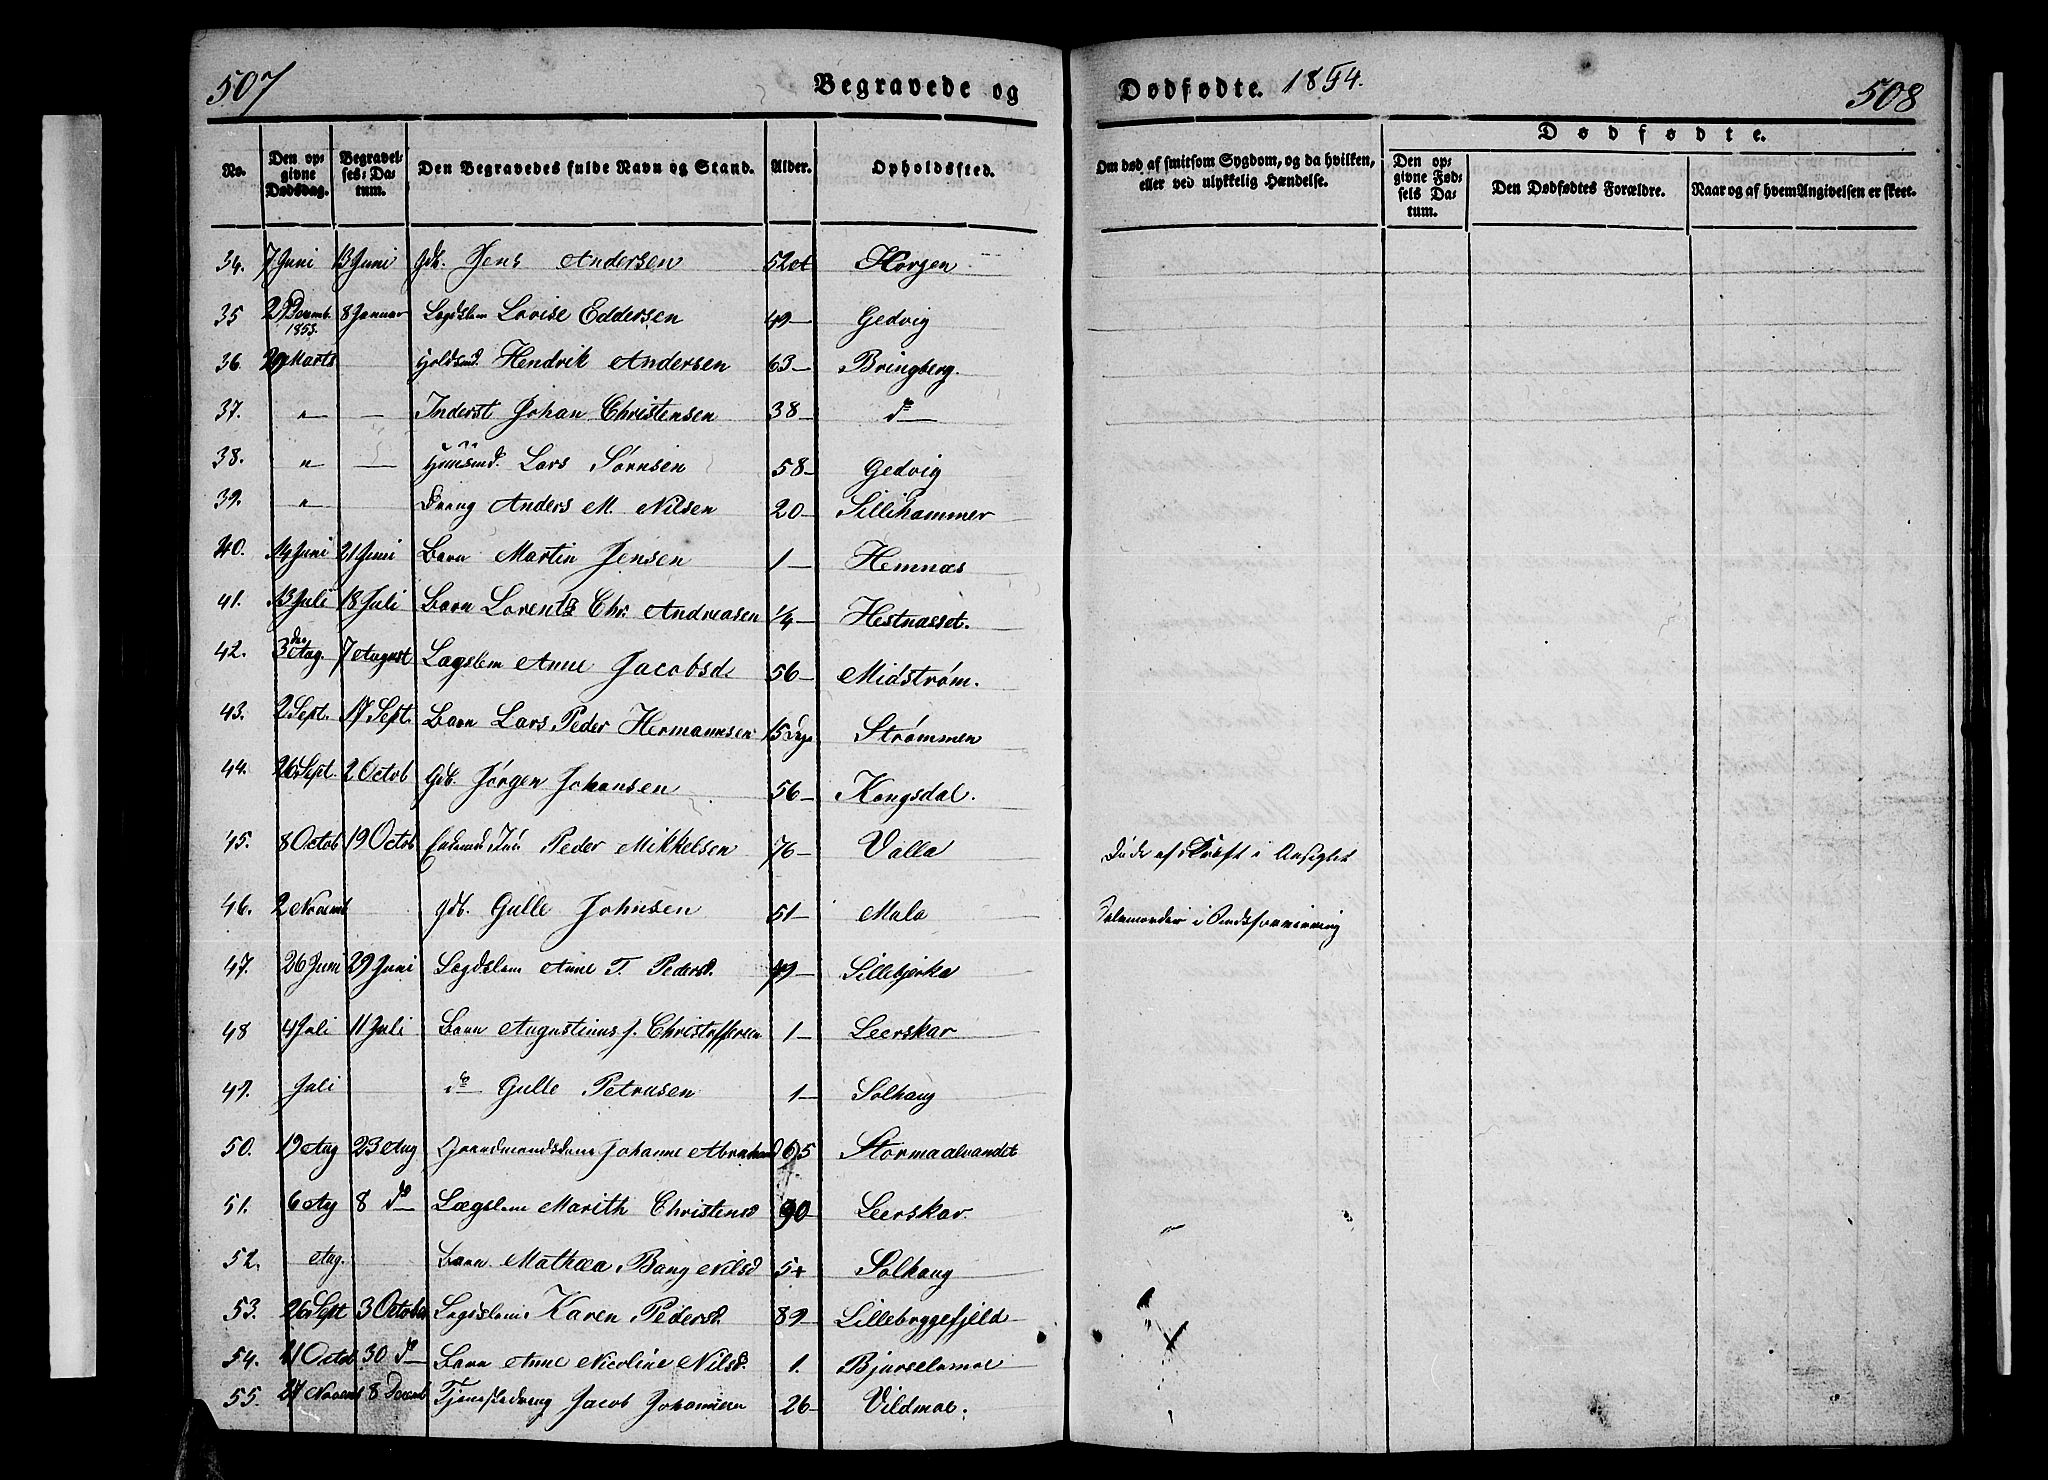 507 Begravede og
Dødfødte. 1854. 508
No. Den opgivne Dødsdag. Begravelses-Datum. Den Begravedes fulde Navn og Stand. Alder. Opholdssted.
Om død af smitsom Sygdom, og da hvilken, eller ved ulykkelig Hændelse.
Dødfødte.
Den opgivne Fødsels Datum. Den Dødfødtes Forældre. Naar og af hvem Angivelsen er skeet.
34. 7 Juni 13 Juni Gdb. Jens Andersen 52 Horgen
35 29 Decemb. 1853. 8 Januar Lægdslem Lovise Eddersen 49 — Gedvig
36. 29 Marts Hendrik Andersen 63 — Bringberg.
37. " — Inderst Johan Christensen 38 — do —
38. " — Huusmd. Lars Sørnsen 58 — Gedvig
39. " Dreng Anders M. Nilsen 20 — Lillehammer
40. 14 Juni 21 Juni Barn Martin Jensen 1 — Hemnæs
41. 13 Juli 18 Juli Barn Lorents Chr. Andreasen 1/4 — Hestnæsset.
42. 3 Aug. 7 August Lægslem Anne Jacobsd. 56 — Midstrøm.
43. 2 Sept. 17 Sept. Barn Lars Peder Hermannsen 15 Dage Strømmen
44. 26 Sept. 2 Octob Gdb. Jørgen Johansen 56 — Kongsdal.
45. 8 Octob 19 Octob Peder Mikkelsen 76 — Valla Døde af Kræft i Ansigtet
46. 2 Novemb Gdb. Gulle Johnsen 51 — Mala Selvmorder i Sindsforvirring
47. 26 Juni 29 Juni Lægdslem Anne T. Pedersd. 79 — Lillebjerka
48 4 Juli 11 Juli Barn Augustinus J. Christoffersen 1 — Leerskar
49. Juli do — Gulle Petrusen 1 — Solhaug
50. 19 Aug 23 Aug Johanne Abrahamsd 65 Stormaalvandet
51. 6 Aug 8 do — Lægslem Marith Christensd 90 Leerskar.
52. Aug. Barn Mathea Bang Nilsd 5 Solhaug
53. 26 Sept 3 October Lægdslem Karen Pedersd. 89 — Lillebryggefjeld
54. 21 Octob 30 do — Barn Anne Nicoline Nilsd. 1. Bjurselvmoe
55. 27 Novemb 8 Decemb Tjenestedreng Jacob Johannesen 26 — Vildmoe.